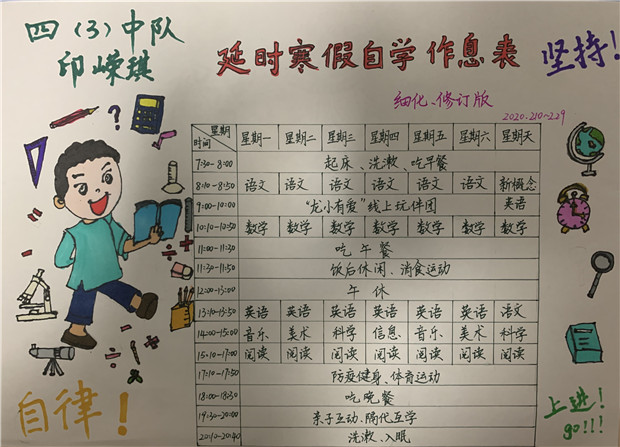 四（3）中队
印嵘琪
延时寒假自学作息表
坚持！
细化、修订版
2020.2.10~2.29
星期
时间
星期一 星期二 星期三 星期四 星期五 星期六 星期天
7:30-8:00 起床、洗漱、吃早餐
8:10-8:50 语文 语文 语文 语文 语文 语文 新概念
9:00-10:00 “龙小有爱”线上玩伴团 英语
10:10-10:50 数学 数学 数学 数学 数学 数学 数学
11:00-11:30 吃午餐
11:30-11:50 饭后休闲、消食运动
12:00-13:00 午休
13:10-13:50 英语 英语 英语 英语 英语 英语 语文
14:00-15:00 音乐 美术 科学 信息 音乐 美术 科学
15:10-17:00 阅读 阅读 阅读 阅读 阅读 阅读 阅读
17:10-17:50 防疫健身、体育运动
18:00-18:30 吃晚餐
19:30-20:00 亲子互动、隔代互学
20:10-20:40 洗漱、入眠
自律！
上进！
go!!!